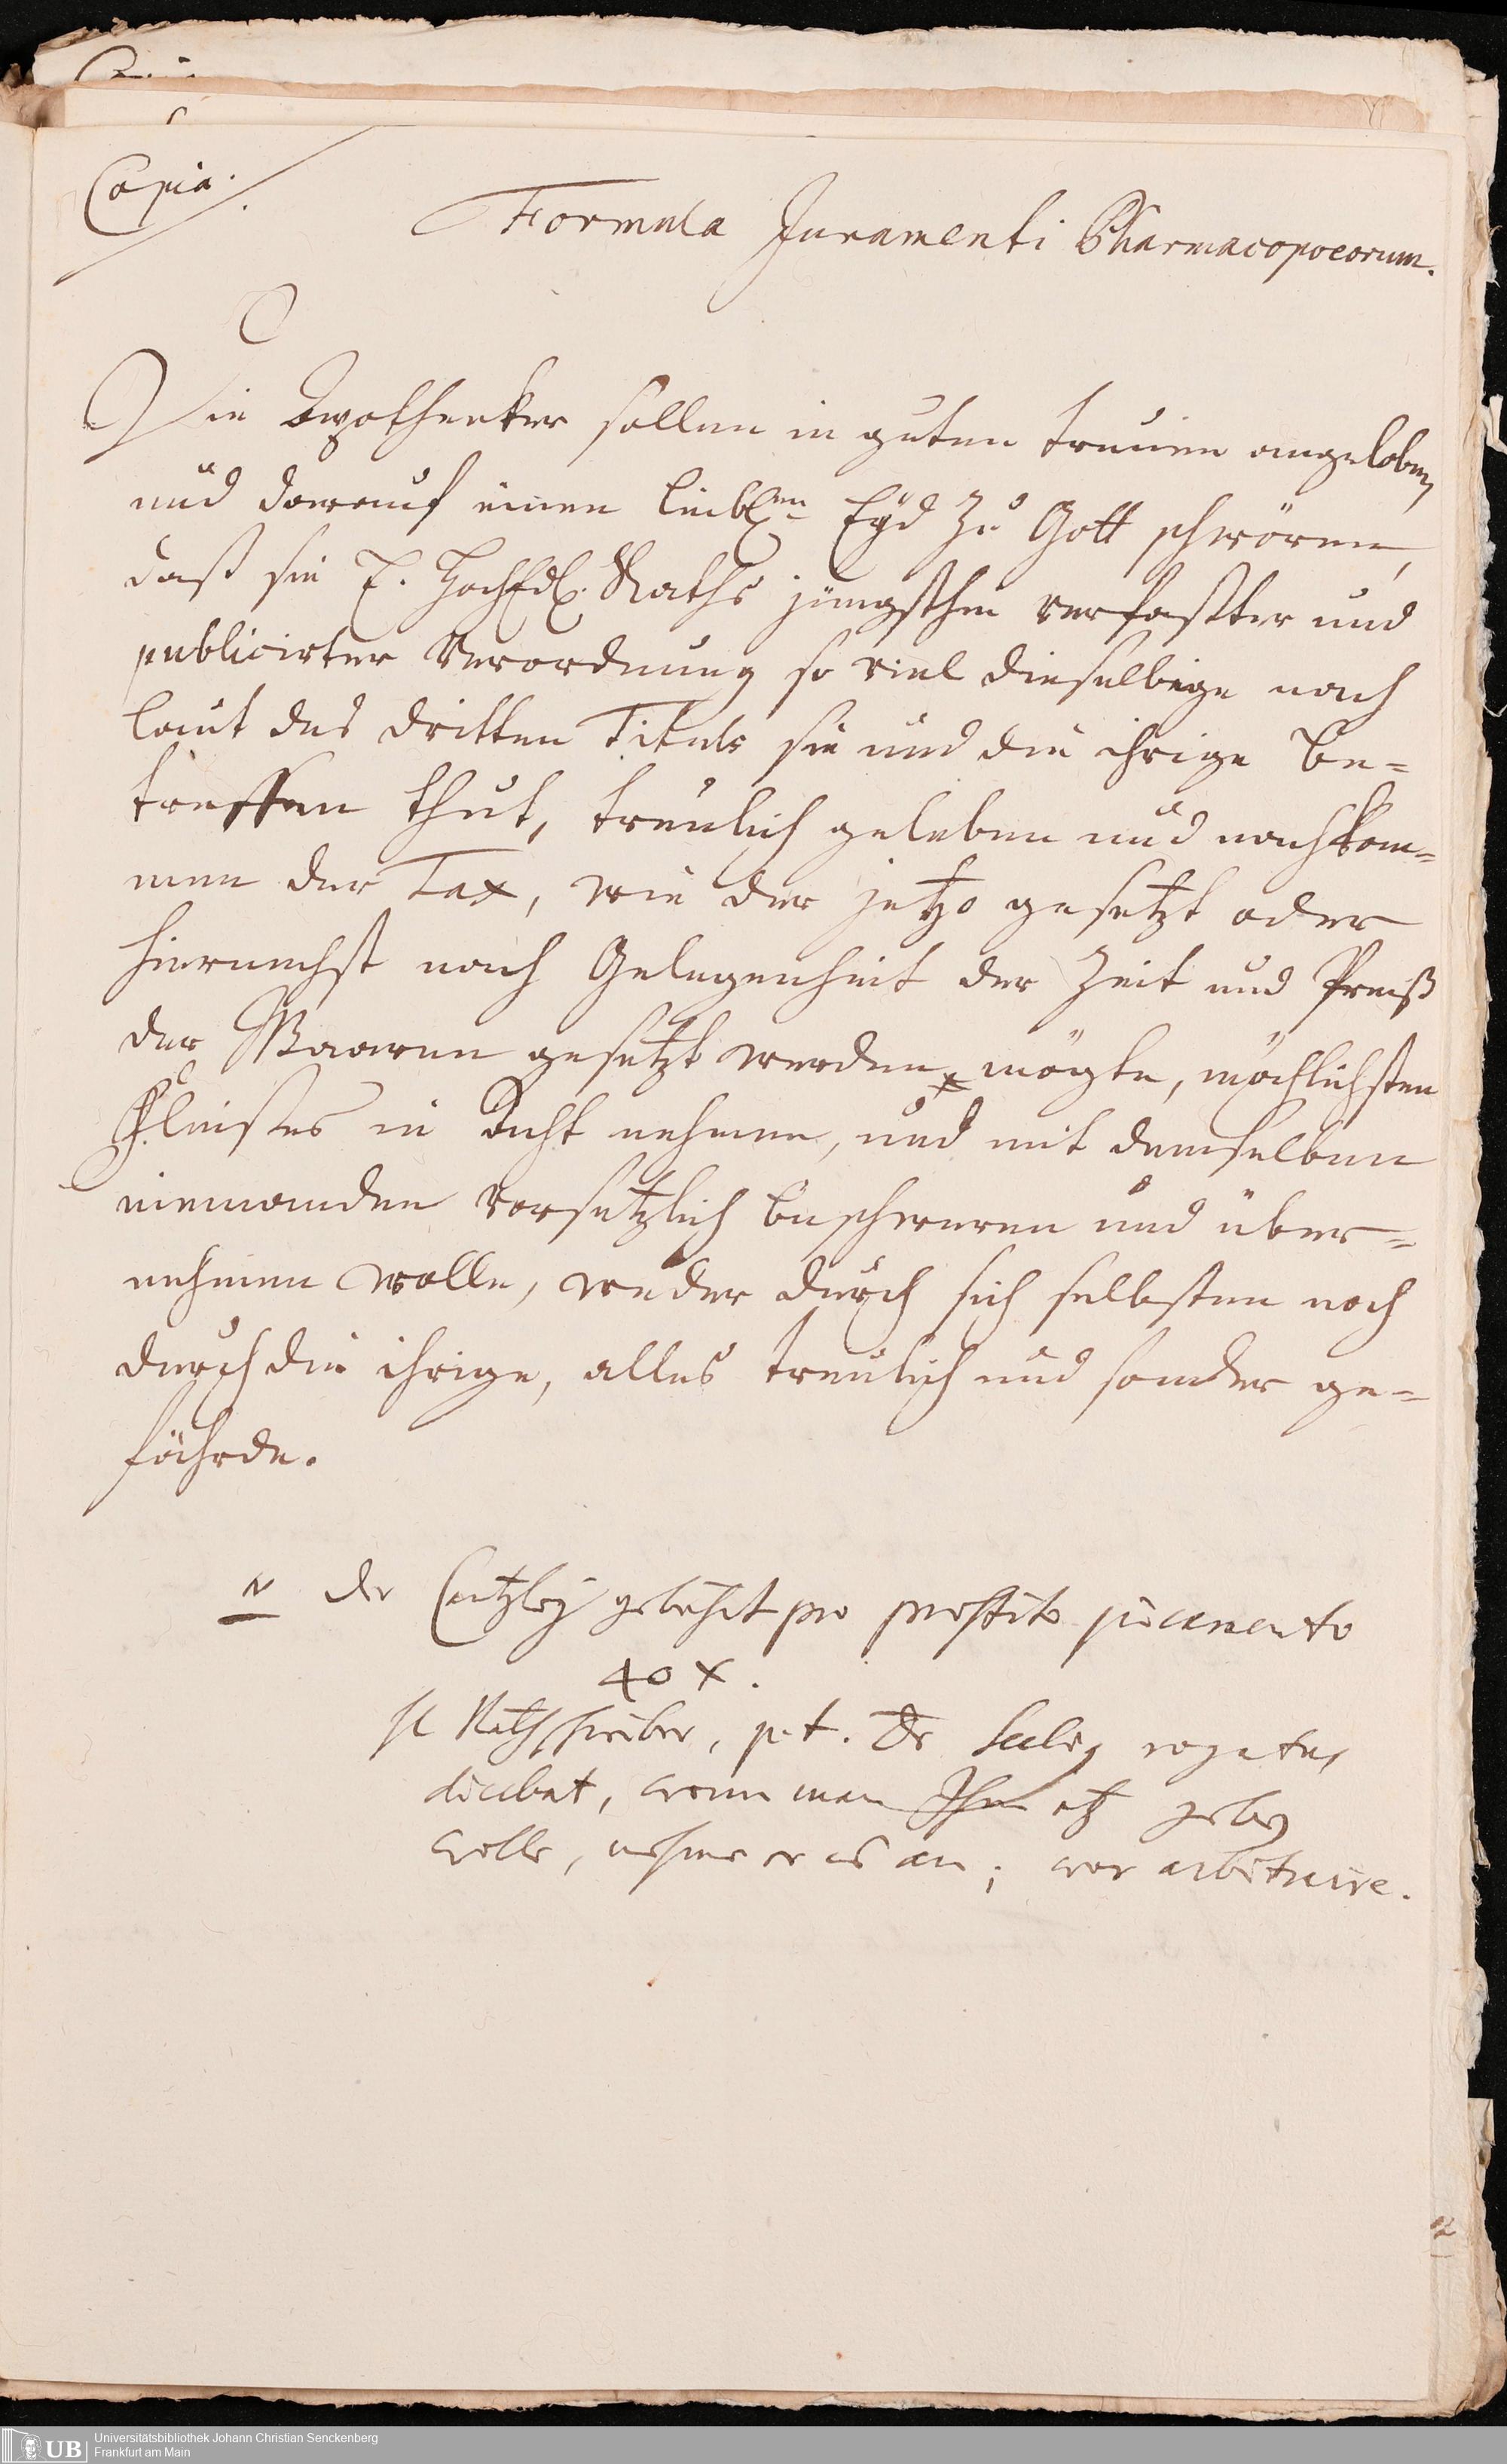 Copia.
Formula Juramenti Pharmacopoeorum.
Die Apothecker sollen in guten treuen angeloben,
und darauf einen leibl:en Eyd zu Gott schwören,
daß sie E. HochEdl. Raths jüngsthin verfaßter und
publicirter Verordnung so viel dieselbige nach
laut des dritten Tituls sie und die ihrige be-
treffen thut, treulich geleben und nachkom-
men der Tax, wie der jetzo gesetzt oder
hiernechst nach Gelegenheit der Zeit und Preiß
der Waaren gesetzt werden mögte, möglichsten
Fleißes in Acht nehmen, und mit demselben
niemanden vorsetzlich beschweren und über-
nehmen wolle, weder durch sich selbsten noch
durch die ihrige, alles treulich und sonder ge-
fährde.
N der Cantzley gebührt pro praestito juramento
40 x.
H Rathschreiber, p.t. Dr rogatus
dicebat, wenn man Ihm etz geben
wolle, nehme er es an; war arbitraire.
Universitätsbibliothek Johann Christian Senckenberg
UB Frankfurt am Main